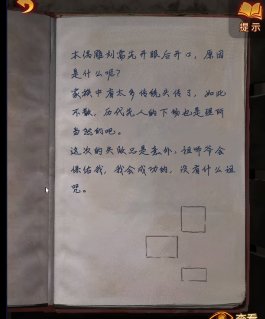 提示
木偶雕刻需先开眼后开口，原因
是什么呢？
家族中有太多传统失传了，如此
不敬，历代先人的下场也是理所
当然的吧。
这次的失败只是意外，祖师爷会
保佑我，我会成功的，没有什么诅
咒。
查看